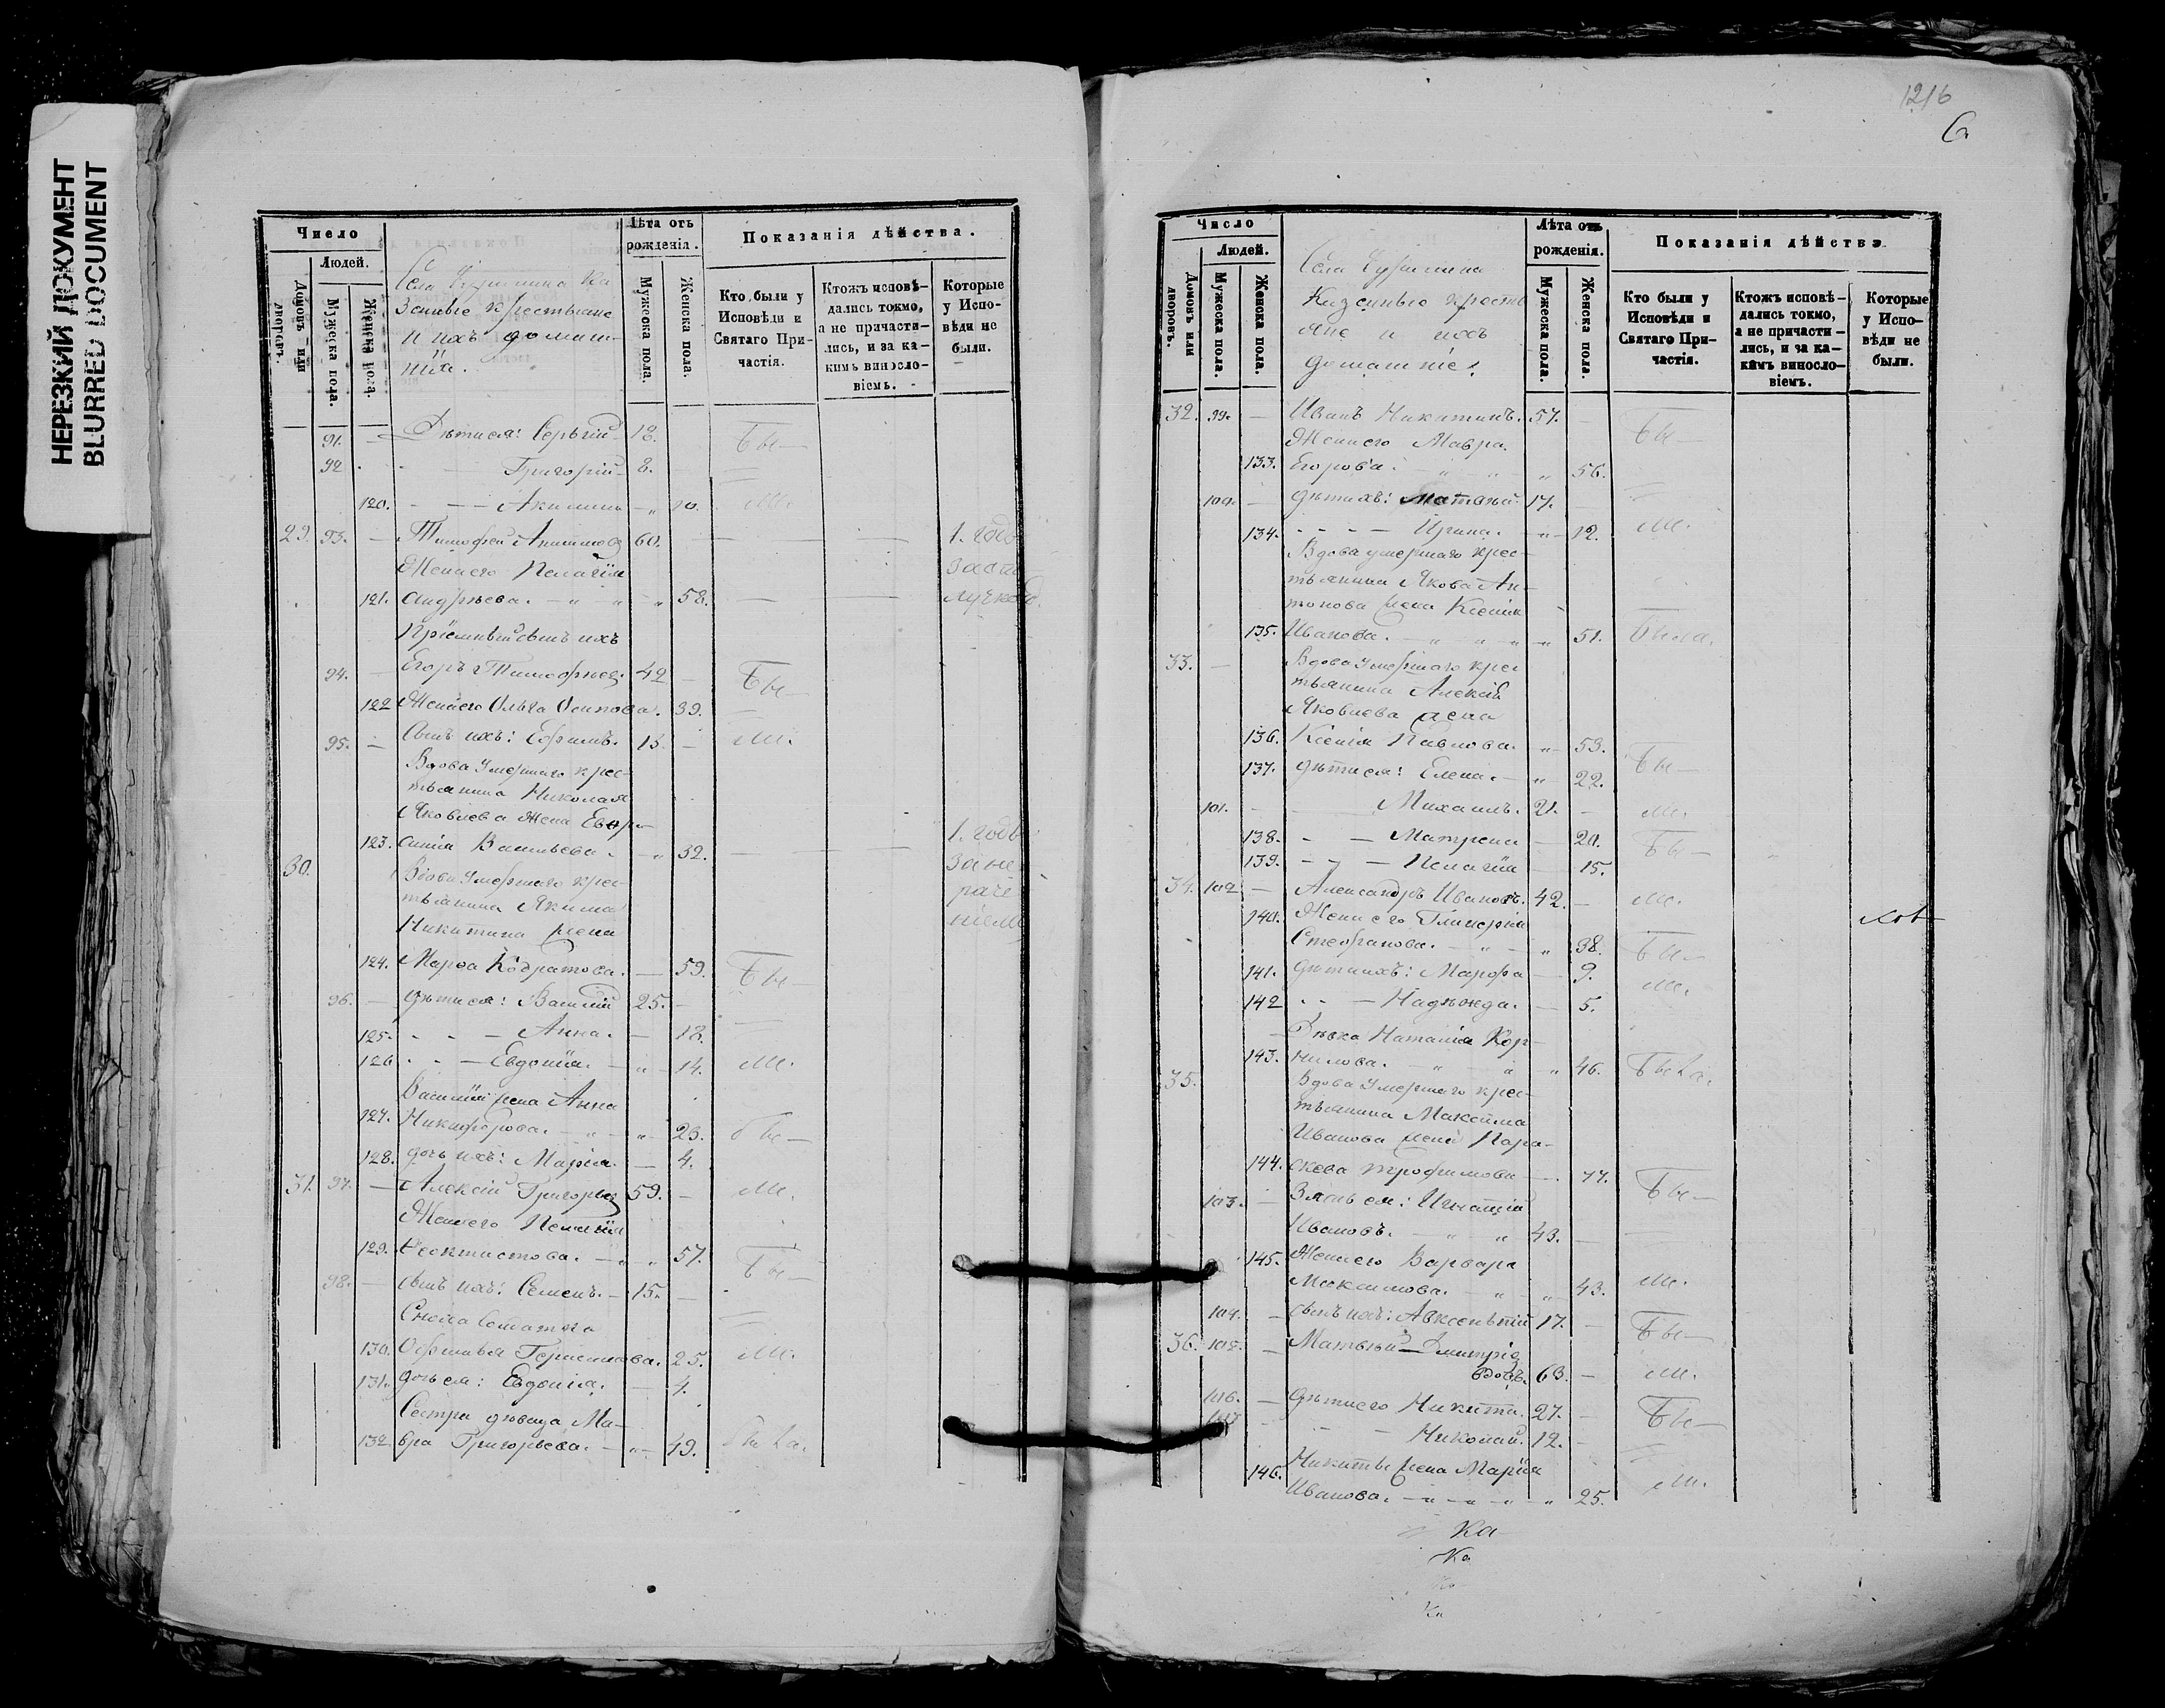 НЕРЕЗКИЙ ДОКУМЕНТ
BLURRED DOCUMENT
Число
Людей.
Домовъ или дворовъ.
Мужеска пола.
Женска пола.
Села Ка
зенные крестьяне
и ихъ домаш-
нiе.
Лѣта отъ рожденія.
Мужеска пола.
Женска пола.
Показанія дѣйства.
Кто были у Исповѣди и Святаго Причастія.
Ктожъ исповѣ-дались токмо, а не причасти-лись, и за ка-кимъ винословіемъ.
Которые у Испо-вѣди не были.
91. Дѣти ея: Сергѣй 18. Бы
92 Григорій 8.
120. Акилина
29. 93. Тимофей 60. 1. годъ
Жена его Пелагія за от
121. Андрѣева. 58. лучкою.
Пріемный сынъ ихъ
94. Егоръ Тимофѣевъ 42 Бы
122 Жена его Ольга Осипова. 39.
95. Сынъ ихъ: Ефимъ. 13. М.
Вдова умершаго крес-
тьянина Николая
Яковлева жена Евфр
123. синія Васильева. 32. 1. годъ
30. Вдова умершаго крес- за не
тьянина Акима раче
Никитина жена ніемъ
124. Марѳа Кодратова. 59. Бы
96. дѣти ея: Василій 25.
125. Анна. 18.
126. Евдокія. 14. М.
Василія жена Анна
127. Никифорова. 23. бы
128. дочь ихъ: Марія. 4.
31. 97. Алексій Григорьевъ 59. М.
Жена его Пелагія
129. Ѳеоктистова. 57. Бы
98. сынъ ихъ: Семенъ. 15.
Сноха солдатка
130. 25. М.
131. дочь ея: Евдокія. 4.
Сестра дѣвица Ма-
132 вра Григорьева. 49. была.
1216
6.
Число
Людей.
Домовъ или дворовъ.
Мужеска пола.
Женска пола.
Села
Казенные крестья
яне и ихъ
домашніе.
Лѣта отъ рожденія.
Мужеска пола.
Женска пола.
Показанія дѣйства.
Кто были у Исповѣди и Святаго Причастія.
Ктожъ исповѣ-дались токмо, а не причасти-лись, и за ка-кимъ винословіемъ.
Которые у Испо-вѣди не были.
32. 99. Иванъ Никитинъ. 57. Бы
Жена его Мавра
133. Егорова. 56.
100. дѣти ихъ: Матвѣй. 17.
134. Ирина. 12. М.
Вдова умершаго крес-
тьянина Якова Ан-
тонова жена Ксенія
135. Иванова. 51. Была.
33. Вдова умершаго крес
тьянина Алексія
Яковлева жена
136. Ксенія Павлова. 53. Бы
137. дѣти ея: Елена. 22.
101. Михаилъ. 21. М.
138. Матрена 20. Бы
139. Пелагія 15.
34. 102. Александръ Ивановъ. 42. М.
140. Жена его Гликерія
Стефанова. 38. Бы
141. дѣти ихъ: Марѳа 9. М.
142 Надежда. 5.
Дѣвка Наталія Кор-
143. нилова. 46. Была.
35. Вдова умершаго крес-
тьянина Максима
Иванова жена Пара-
144. скева Трофимова 77. Бы
103. Зять ея: Игнатій
Ивановъ. 43.
145. Жена его Варвара
Максимова. 43. М.
104. сынъ ихъ: Авксентій 17. Бы
36. 105. Матвѣй Дмитріе
вдовъ. 63. М.
106. Дѣти его Никита. 27. Бы
107 Николай. 12.
Никиты жена Марія
146. Иванова. 25. М.
Ка
Ка
Ка